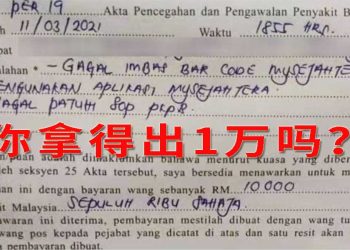 PER 19 Akta Pencegahan dan Pengawalan Penyakit B
11/03/2021 Waktu 1855 HRS.
alahan * - GAGAL IMBAS BAR CODE MYSEJAHTE
ENGUNAKAN APLIKASI MYSEJAHTERA
GAGAL PATUHI SOP PKPB.
你拿得出1万吗?
puan adalah dimaklumkan bahawa menurut kuasa yang diber
leh seksyen 25 Akta tersebut, saya bersedia menawarkan untuk m
an ini dengan bayaran wang sebanyak RM 10,000
it Malaysia. SEPULUH RIBU SAHAJA
awaran ini diterima, pembayaran mestilah dibuat dengan wang tu
wang pos kepada pejabat yang dicatat di atas dan satu resit akan
pembayaran dibuat.